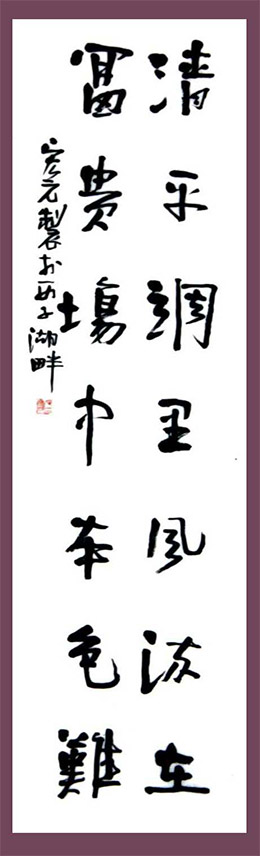 清平調里風流在
富貴場中本色難
宏元製於西子湖畔